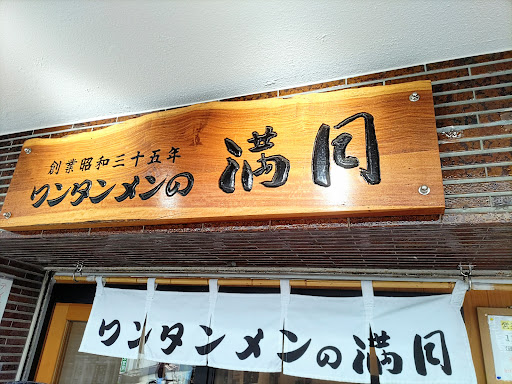 創業昭和三十五年
ワンタンメンの満月
ワンタンメンの満月